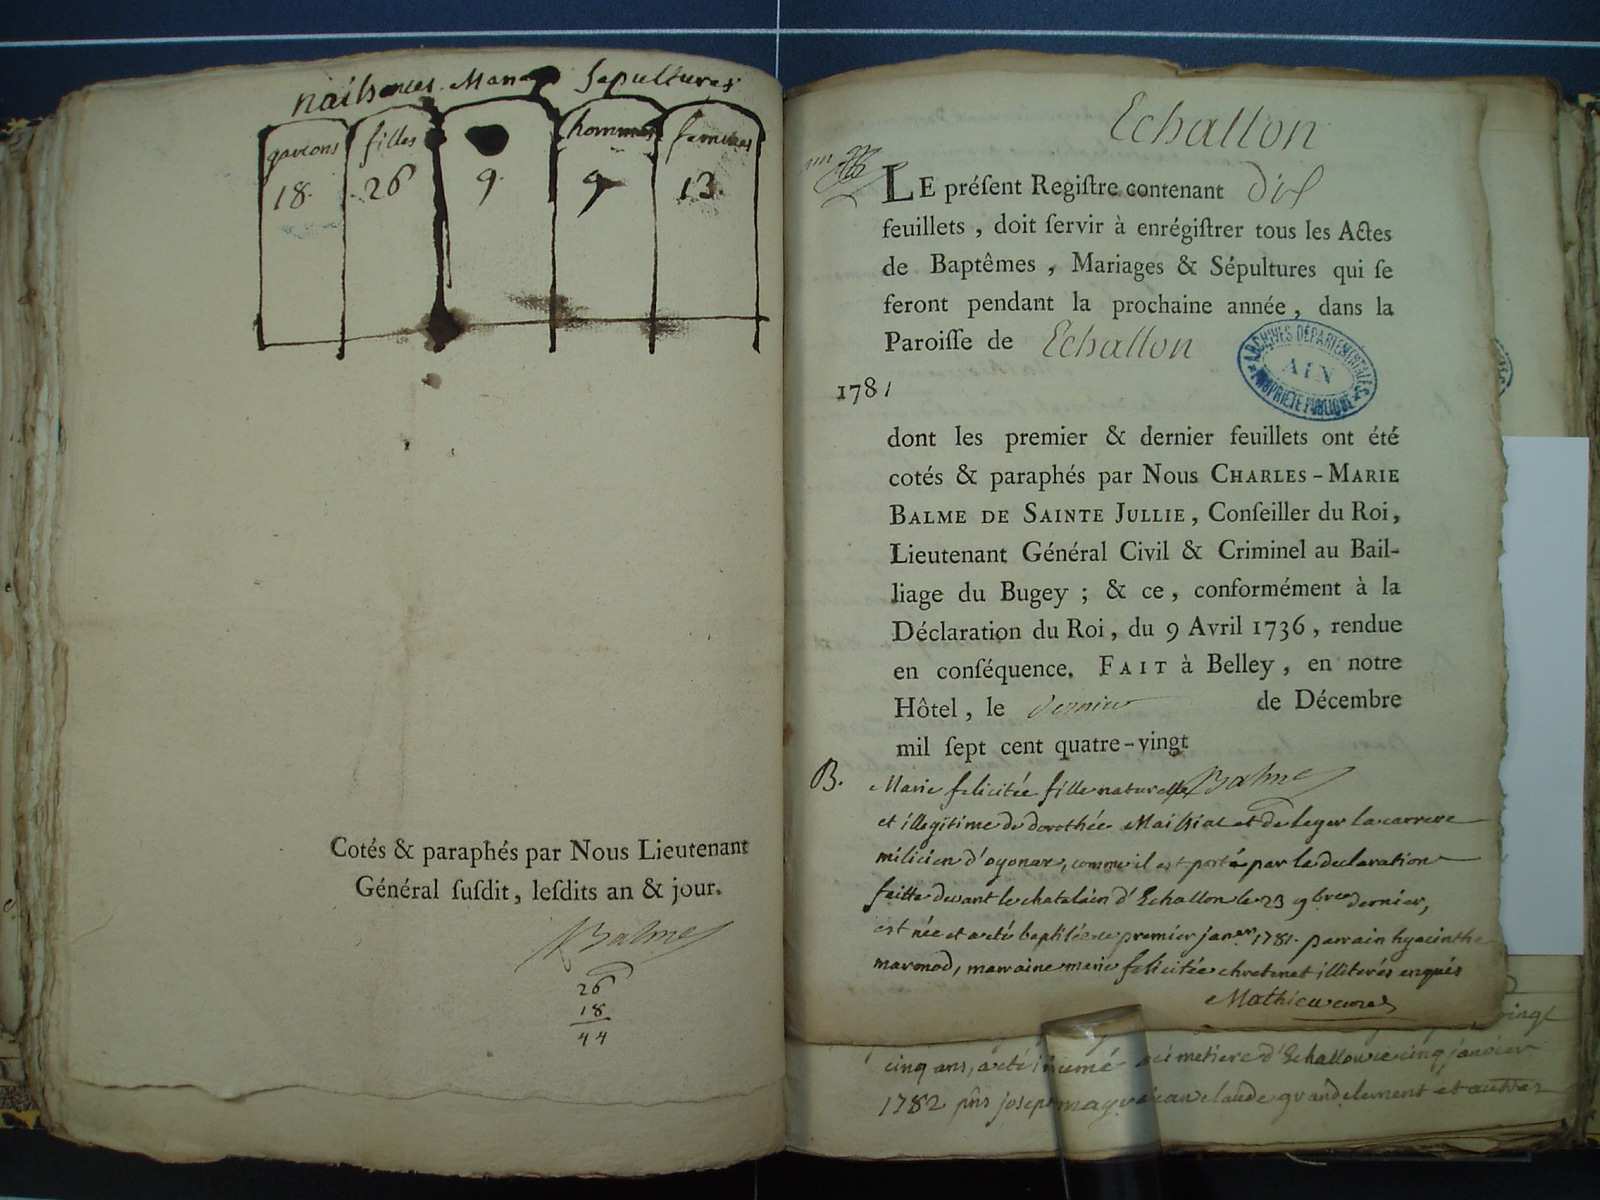 naissances Mari Sepultures
garcons filles hommes femmes
18. 26 9 9 13
Cotés & paraphés par Nous Lieutenant
Général ſuſdit, leſdits an & jour.
Balme
26
18
44
Echallon
LE préſent Regiſtre contenant dix
feuillets, doit ſervir à enrégiſtrer tous les Actes
de Baptêmes, Mariages & Sépultures qui ſe
feront pendant la prochaine année, dans la
Paroiſſe de Echallon
ARCHIVES DÉPARTEMENTALES
AIN
PROPRIÉTÉ PUBLIQUE
1781
dont les premier & dernier feuillets ont été
cotés & paraphés par Nous CHARLES-MARIE
BALME DE SAINTE JULLIE, Conſeiller du Roi,
Lieutenant Général Civil & Criminel au Bail-
liage du Bugey ; & ce, conformément à la
Déclaration du Roi, du 9 Avril 1736, rendue
en conſéquence. FAIT à Belley, en notre
Hôtel, le dernier de Décembre
mil ſept cent quatre-vingt
Balme
B. Marie felicitée fille naturelle
et illegitime de dorothée Maissiat et de leger lacarrere
milicien d'oyonax, comme il est porté par la declaration
faitte devant le chatelain d'Echallon le 23 9bre dernier,
est née et a eté baptisée le premier janer 1781. parrain hyacinthe
marmod, marraine marie felicitée chretenet illiterés enquis
Mathieu curé
vingt
cinq ans, a eté inhumé cimetiere d'Echallon le cinq janvier
1782 pñs joseph may jean claude grandclement et autres